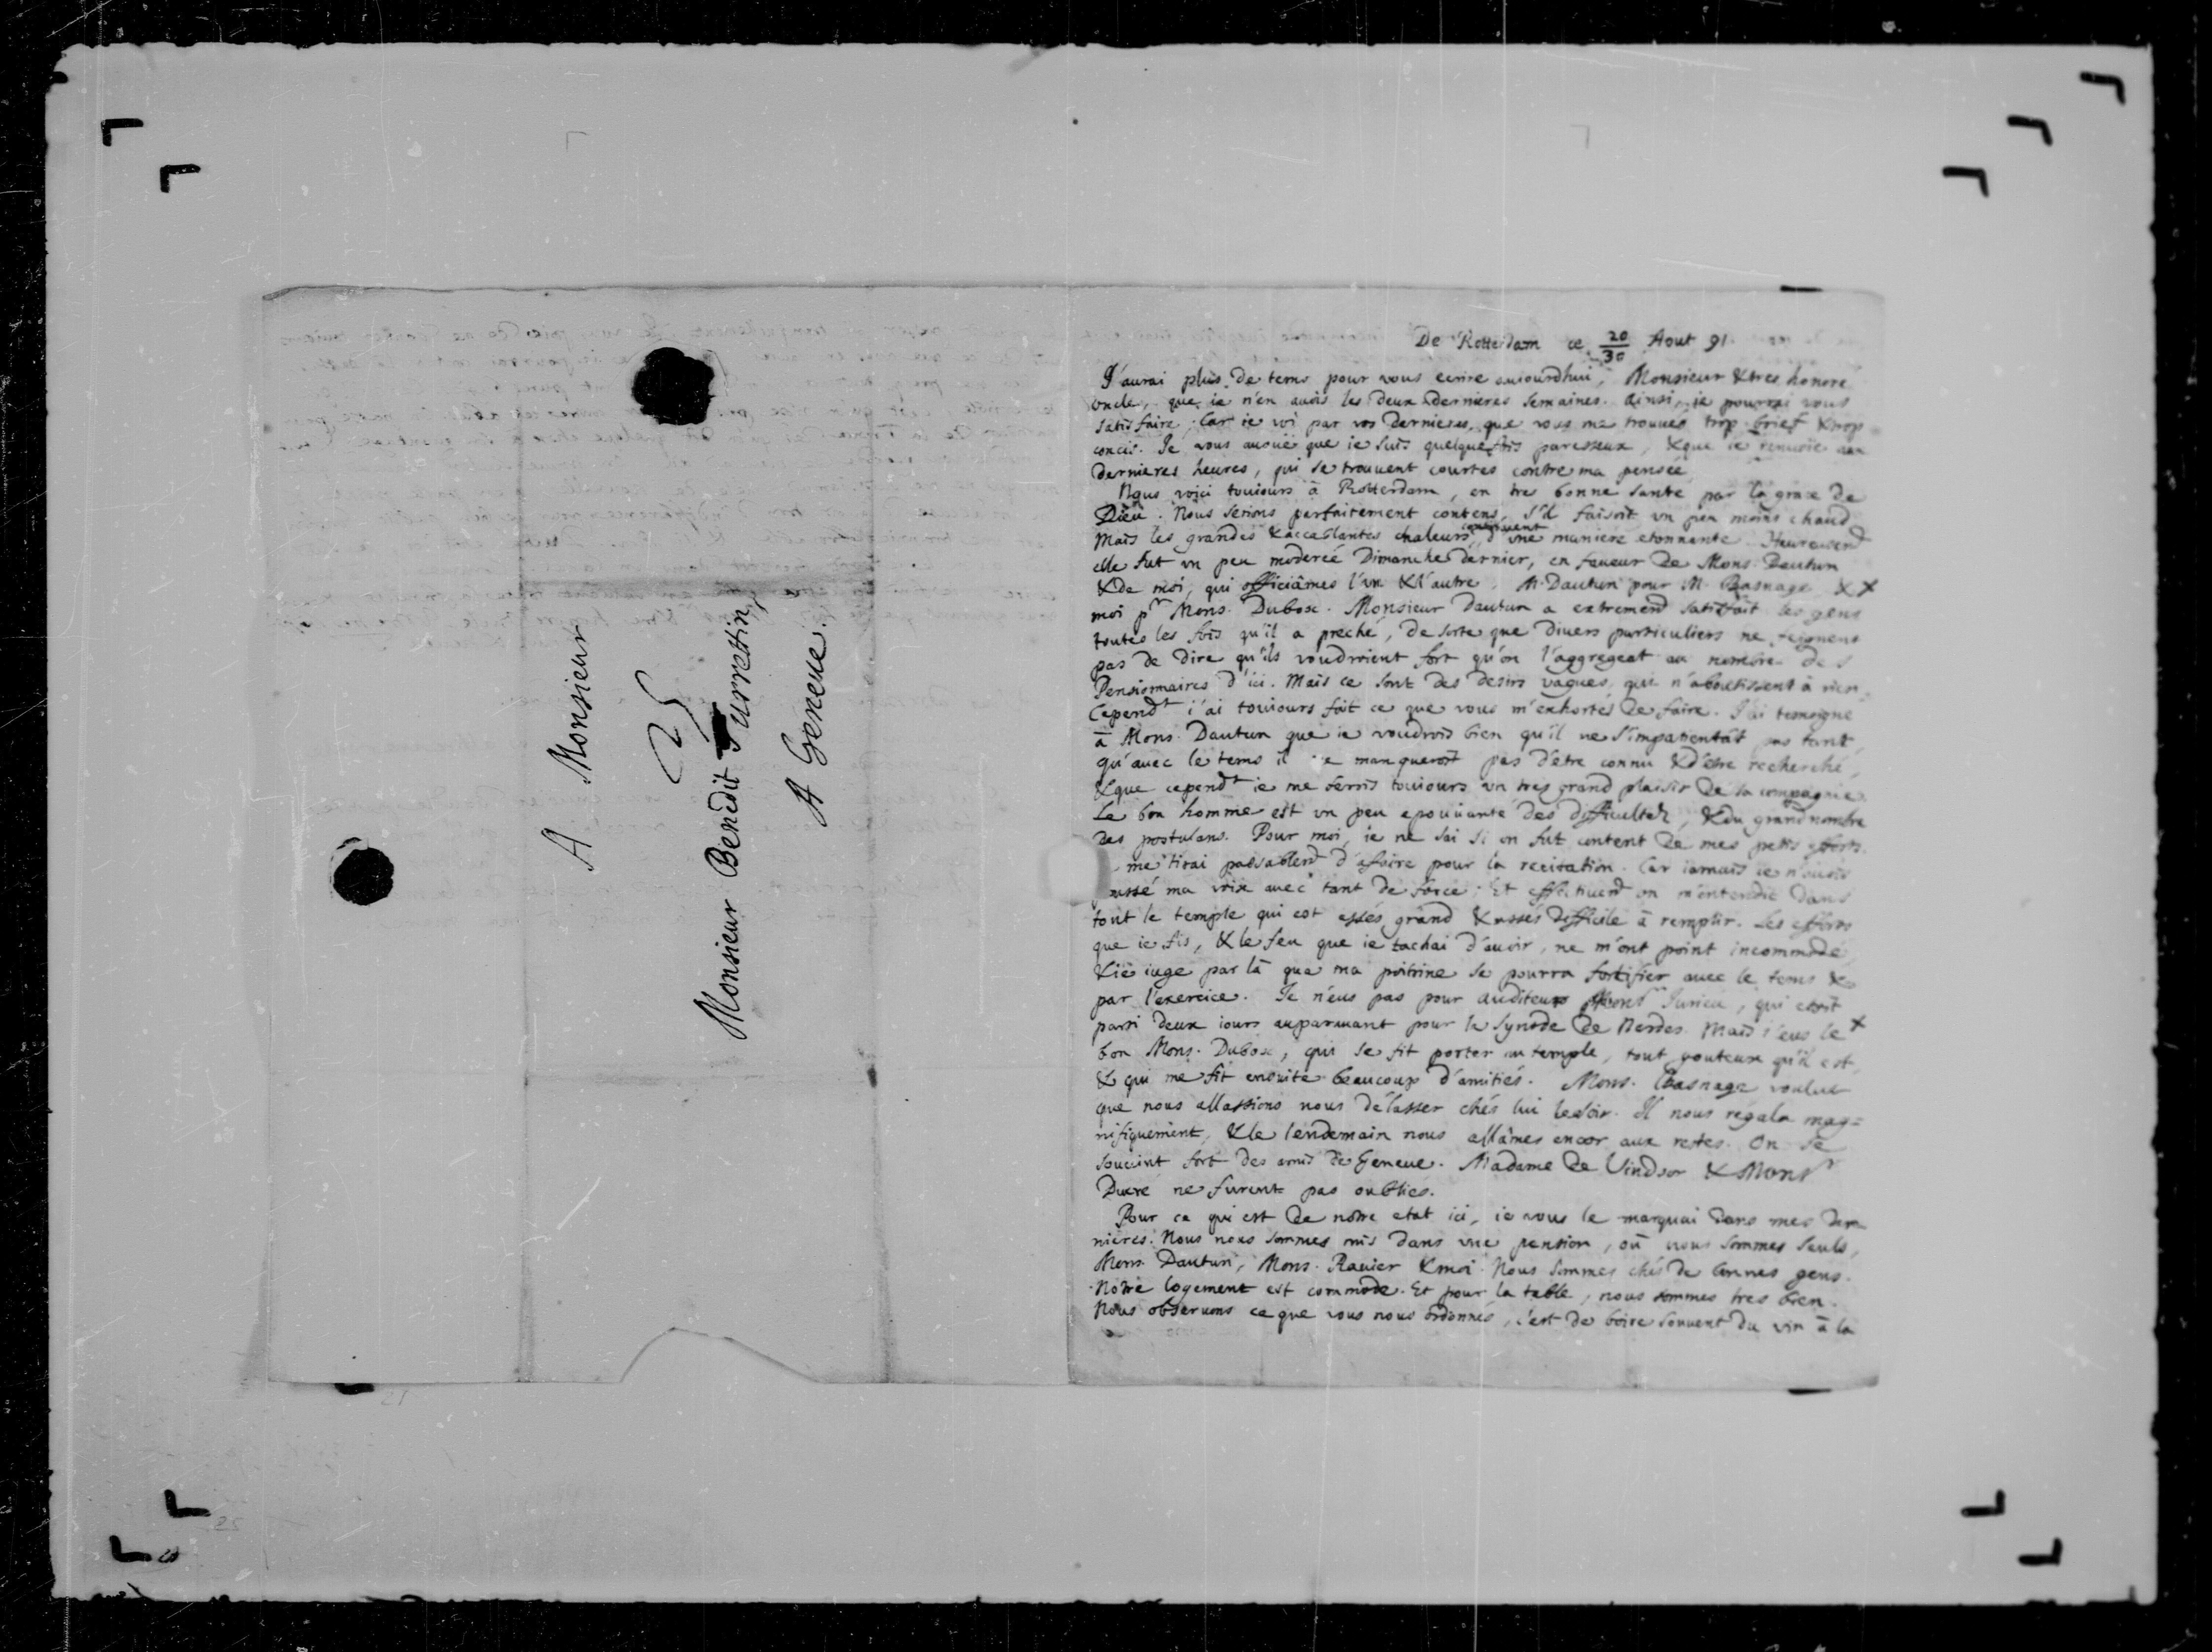 A Monsieur
Monsieur Benedit Turrettin,
A Geneve.
De Rotterdam ce 20/30 Aout 91.
J'aurai plus de tems pour vous ecrire auiourdhui, Monsieur & tres honoré
oncle, que ie n'en avois les deux dernieres semaines. Ainsi, ie pourrai vous
satisfaire; Car ie voi par vos dernieres, que vous me trouvés trop brief & trop
concis. Ie vous avouë que ie suis quelquefois paresseux, & que ie renvoie aux
dernieres heures, qui se trouvent courtes contre ma pensée.
Nous voici touiours à Rotterdam, en tres bonne santé par la grace de
Dieu. Nous serions parfaitement contens, s'il faisoit un peu moins chaud
Mais les grandes & accablantes chaleurs continuent d'une maniere etonnante. Heureusemt
elle fut un peu moderée Dimanche dernier, en faveur de Mons. Dautun
& de moi, qui officiâmes l'un & l'autre. M. Dautun pour M. Basnage &
moi pr Mons. Dubosc. Monsieur Dautun a extrement satisfait les gens
toutes les fois qu'il a preché, de sorte que divers particuliers ne feignent
pas de dire qu'ils voudroient fort qu'on l'aggregeat au nombre des
Pensionnaires d'ici. Mais ce sont des desirs vagues, qui n'aboutissent à rien.
Cependt i'ai touiours fait ce que vous m'exhortés de faire. J'ai temoigné
à Mons. Dautun que ie voudrois bien qu'il ne s'impatientât pas tant,
qu'avec le tems il ne manqueroit pas d'être connu & d'être recherché,
& que cependt ie me ferois touiours un tres grand plaisir de sa compagnie.
Le bon homme est un peu epouvanté des difficultez, & du grand nombre
des postulans. Pour moi, ie ne sai si on fut content de mes petis efforts.
me tirai passablemt d'afaire pour la recitation. Car iamais ie n'avois
poussé ma voix avec tant de force; Et effectivemt on m'entendit dans
tout le temple qui est assés grand & assés difficile à remplir. Les efforts
que ie fis, & le feu que ie tachai d'avoir, ne m'ont point incommodé,
& ie iuge par là que ma poitrine se pourra fortifier avec le tems &
par l'exercice. Ie n'eus pas pour auditeur Monsr Jurieu, qui etoit
parti deux iours auparavant pour le Synode de Nerdes. Mais i'eus le
bon Mons. Dubosc, qui se fit porter au temple, tout gouteux qu'il est,
& qui me fit ensuite beaucoup d'amitiés. Mons. Basnage voulut
que nous allassions nous délasser chés lui le soir. Il nous régala mag=
nifiquement, & le lendemain nous allâmes encor aux restes. On se
souvint fort des amis de Geneve. Madame de Vindsor & Monsr
Ducré ne furent pas oubliés.
Pour ce qui est de nôtre etat ici, ie vous le marquai dans mes der
nieres. Nous nous sommes mis dans une pension, où nous sommes seuls,
Mons. Dautun, Mons. Ravier & moi. Nous sommes chés de bonnes gens.
Nôtre logement est commode. Et pour la table, nous sommes tres bien.
Nous observons ce que vous nous ordonnés, c'est de boire souvent du vin à la